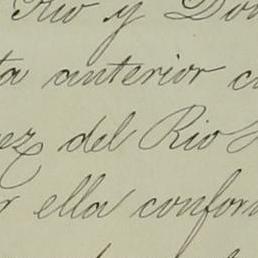 Rio y Don
ta anterior c
ez del Rio
r ella conform